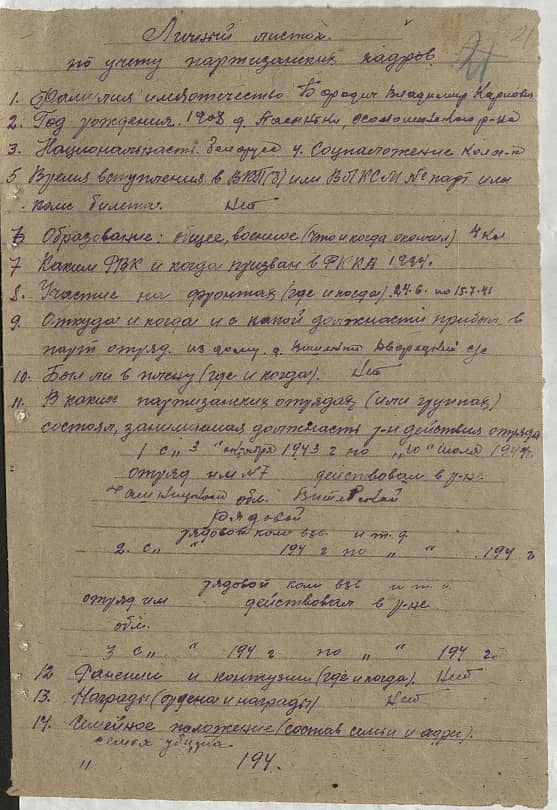 21
Личный листок
по учету партизанских кадров
1. Фамилия имя отчество Бородич Владимир Карпович
2. Год рождения 1908 д.
3. Национальность белорус 4. Соцположение колх-к
5 Время вступления в ВКП(б) или ВЛКСМ № парт или
комс билета. Нет
6 Образование: общее, военное (что и когда окончил) 4 кл
7 Каким РВК и когда призван в РККА
8. Участие на фронтах (где и когда) 24.6. по 15.7.41
9. Откуда и когда и с какой должности прибыл в
парт отряд. из дому. д. с/с
10. Был ли в плену (где и когда). Нет
11. В каких партизанских отрядах (или группах)
состоял, занимаемая должность р-н действия отряда
1 с „ 3 " 1943 г по „ " июля 194
отряд им №7 действовал в р-не
обл.
рядовой
рядовой ком взв. и т.д.
2. с „ " 194 г по „ " 194 г
рядовой ком взв и т.д.
отряд им действовал в р-не
обл.
3 с „ " 194 г по „ " 194 г.
12 Ранения и контузии (где и когда). Нет
13. Награды (ордена и награды) Нет
14. Семейное положение (состав семьи и адрес).
семья убита
" 194.